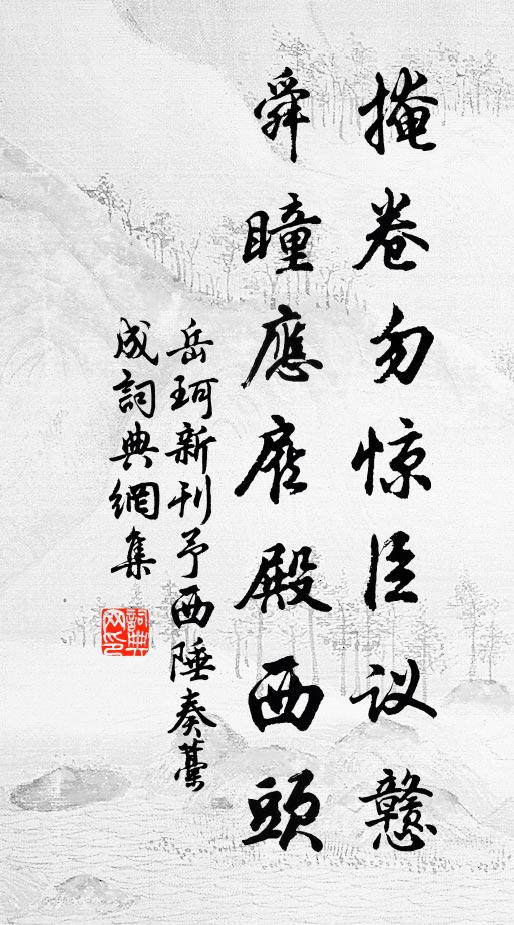 掩卷勿惊臣议戆
舜瞳應庇殿西頭
岳珂新刊予西陲奏藁
成詞典網集
詞典网印